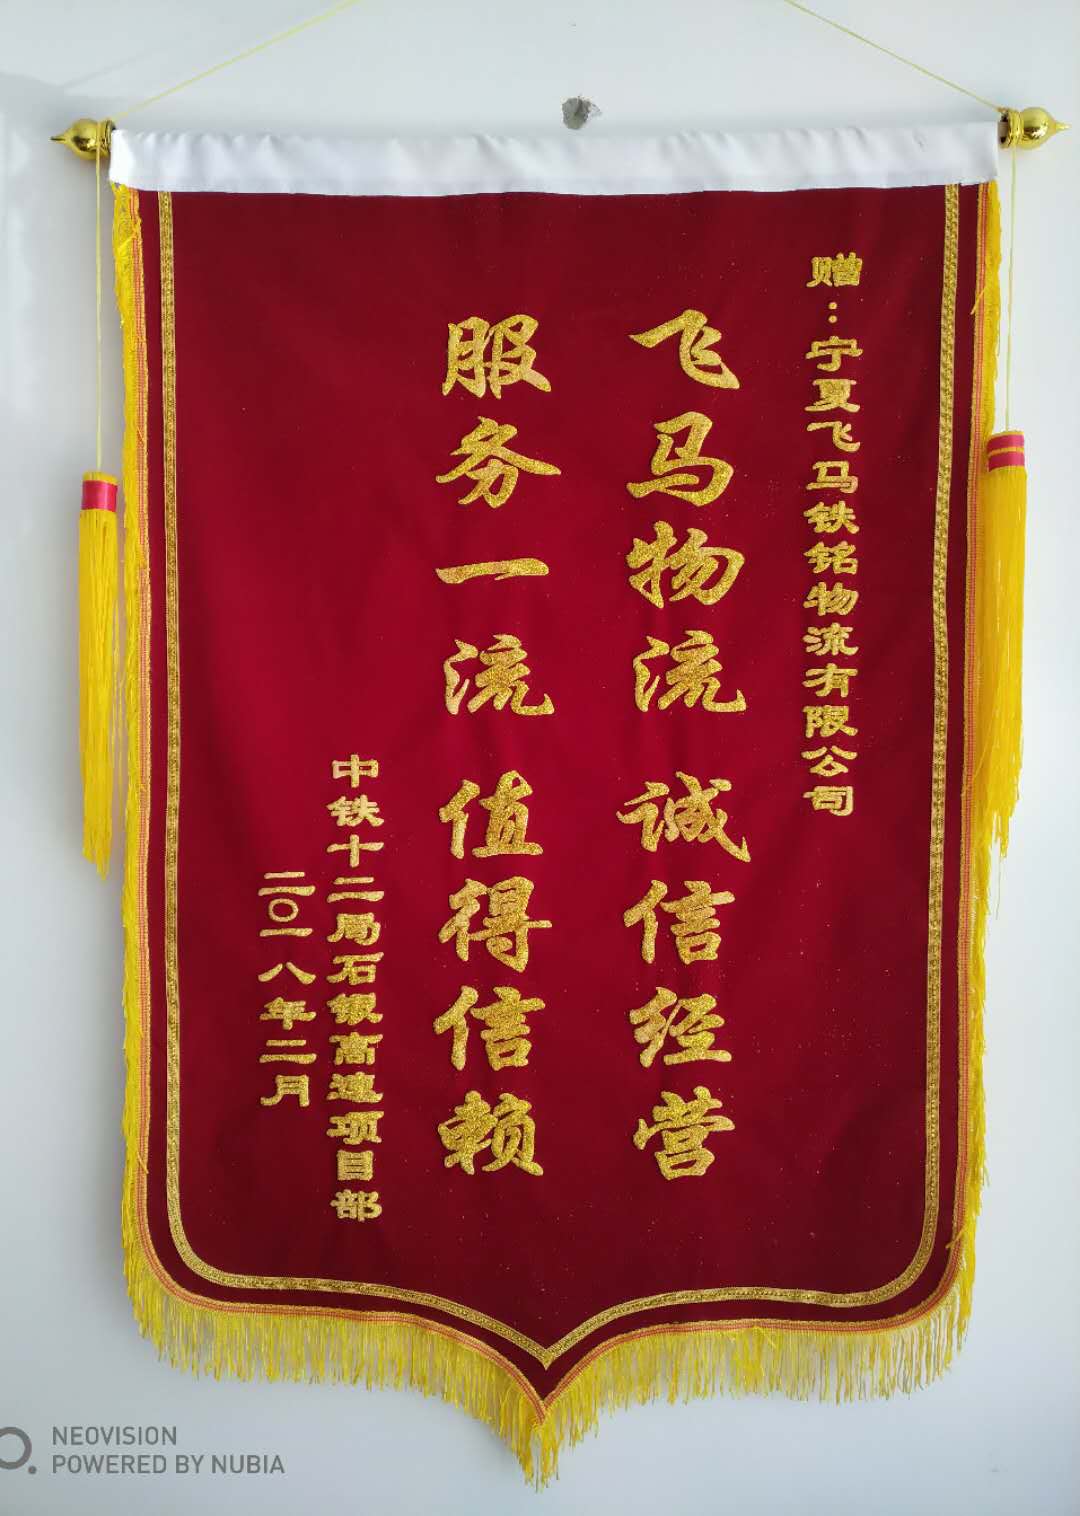 赠：宁夏飞马铁铭物流有限公司
飞马物流 诚信经营
服务一流 值得信赖
中铁十二局石银高速项目部
二〇一八年二月
NEOVISION
POWERED BY NUBIA